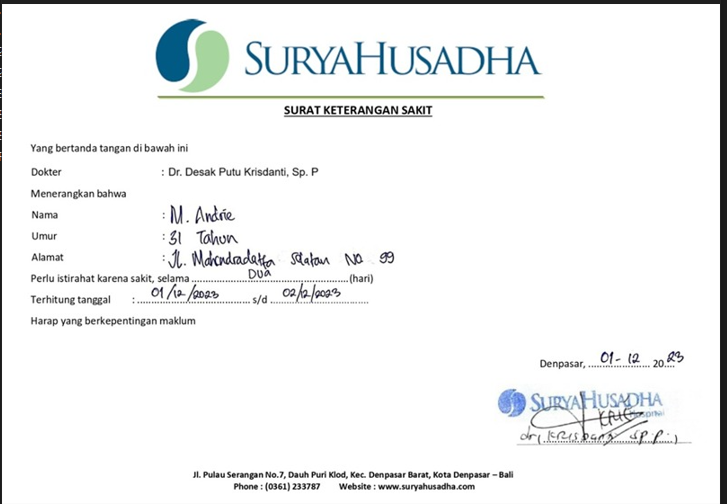 SURYAHUSADHA
SURAT KETERANGAN SAKIT
Yang bertanda tangan di bawah ini
Dokter : Dr. Desak Putu Krisdanti, Sp. P
Menerangkan bahwa
Nama : M. Andrie
Umur : 31 Tahun
Alamat : Jl. Mahendradatta Selatan No 99
Perlu istirahat karena sakit, selama ........ Dua ........ (hari)
Terhitung tanggal : 01/12/2023 s/d 02/12/2023
Harap yang berkepentingan maklum
Denpasar, 01-12 2023
SURYAHUSADHA
Hospital
Jl. Pulau Serangan No.7, Dauh Puri Klod, Kec. Denpasar Barat, Kota Denpasar – Bali
Phone : (0361) 233787 Website : www.suryahusadha.com